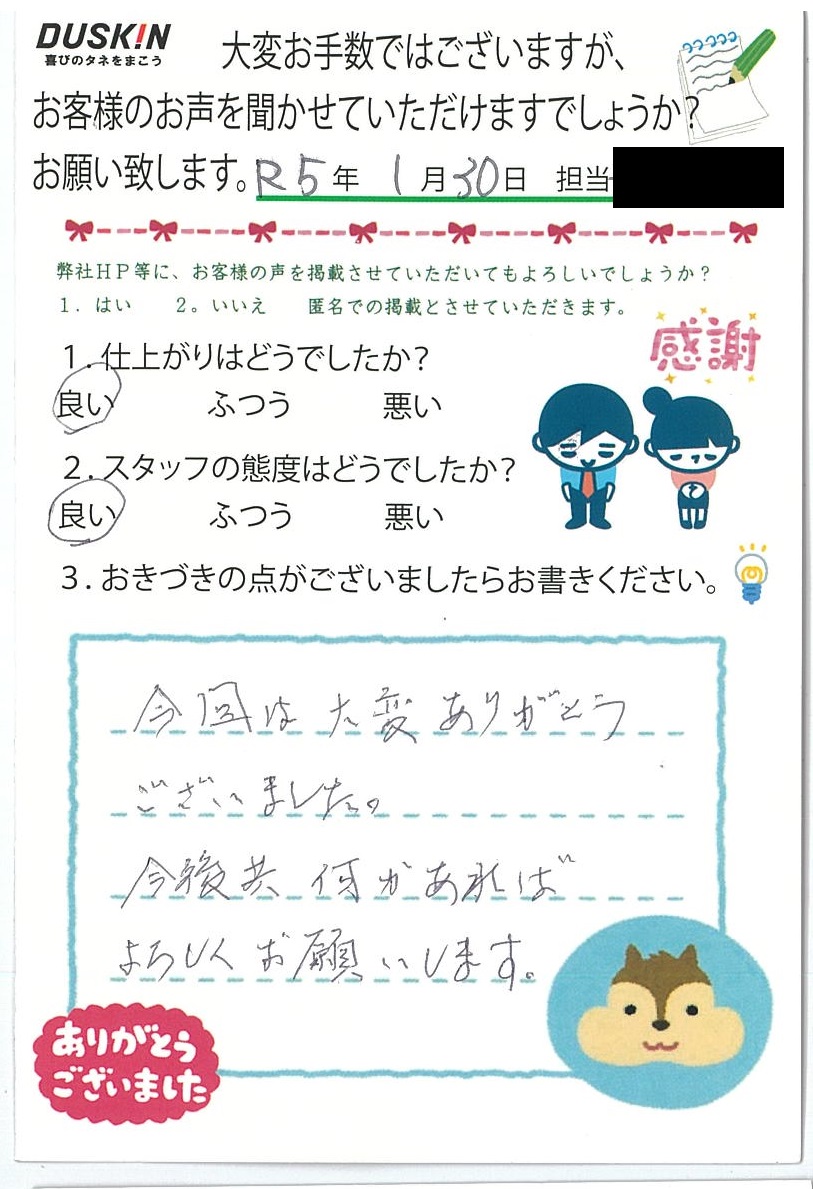 DUSK!N
喜びのタネをまこう
大変お手数ではございますが、
お客様のお声を聞かせていただけますでしょうか?
お願い致します。R5年 1月30日 担当
弊社HP等に、お客様の声を掲載させていただいてもよろしいでしょうか?
1. はい 2。いいえ 匿名での掲載とさせていただきます。
感謝
1.仕上がりはどうでしたか?
良い ふつう 悪い
2.スタッフの態度はどうでしたか?
良い ふつう 悪い
3.おきづきの点がございましたらお書きください。
今回は大変ありがとう
ございました。
今後共何かあれば
よろしくお願いします。
ありがとう
ございました